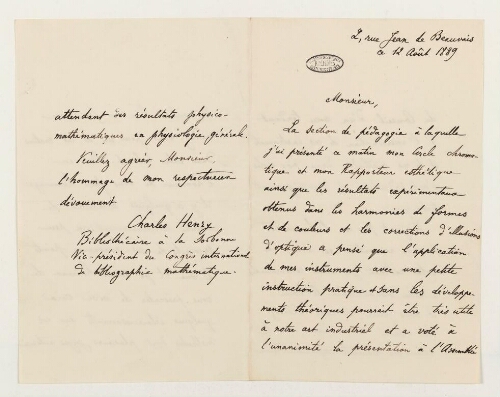 2, rue Jean de Beauvais
ce 12 Août 1889
Monsieur,
La section de pédagogie à laquelle
j'ai présenté ce matin mon Cercle chroma-
tique et mon Rapporteur esthétique
ainsi que les résultats expérimentaux
obtenus dans les harmonies de formes
et de couleurs et les corrections d'illusions
d'optique a pensé que l'application
de mes instruments avec une petite
instruction pratique et sans les développe-
ments théoriques pourrait être très utile
à notre art industriel et a voté à
l'unanimité la présentation à l'Assemblée
attendant des résultats physico-
mathématiques en physiologie générale.
Veuillez agréer, Monsieur,
l'hommage de mon respectueux
dévouement
Charles Henry
Bibliothécaire à la Sorbonne
Vice-président du Congrès international
de bibliographie mathématique.